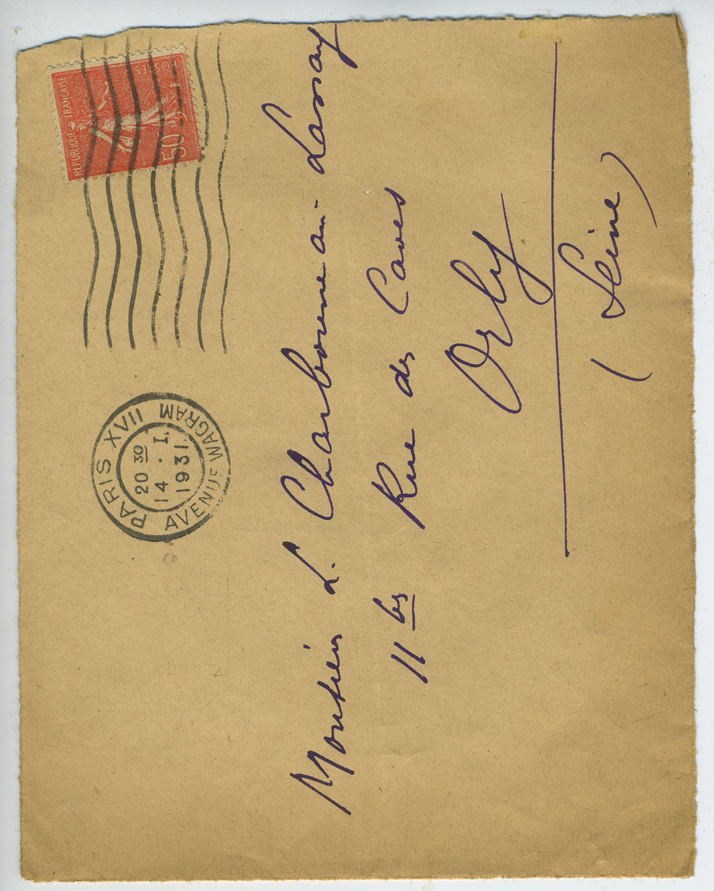 REPUBLIQUE FRANCAISE
POSTES
50
PARIS XVII
AVENUE WAGRAM
20 30
14 . I.
1931
Monsieur L. Charbonneau-Lassay
11 bis Rue des Caves
Orly
(Seine)